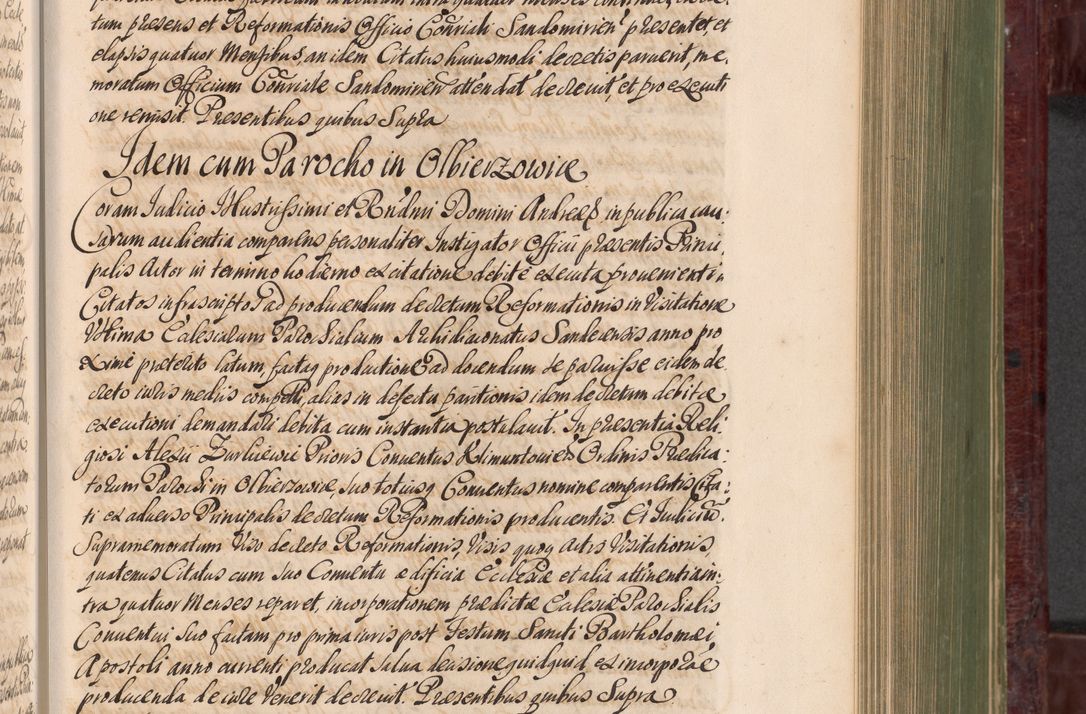 tum præsens et Reformationis Officio Conriali Sandomirien præsentet, et
elapsis quatuor Mensibus, an idem Citatus huiusmodi decretis paruerit, me,
moratum Officium Conriale Sandomirien attendat decreuit, et pro executi
one remisit. Præsentibus quibus Supra
Idem cum Parocho in Olbierzowice
Coram Judicio Illustrissimi et Rndni Domini Andreæ in publica cau,
sarum audientia comparens personaliter Instigator Officii præsentis Princi
palis Actor in termino hodierno ex citatione debitè executa prouenienti
Citatos infrascriptos ad producendum decretum Reformationis in Visitatione
Vltima Ecclesiarum Parochialium Archidiaconatus Sandecensis anno pro
ximè præterito latum, factaq productione ad docendum se paruisse eidem de
creto iuris mediis compelli, alias in defectu paritionis idem decretum debitæ
executioni demandari debita cum instantia postulauit. In præsentia Reli,
giosi Alexii Zurkiewicz Prioris Conuentus Klimuntouien Ordinis Prædica,
torum Parochi in Olbierzowice, suo totiusq Conuentus nomine comparentis Cita,
ti ex aduerso Principalis decretum Reformationis producentis. Et Judiciũ
Supramemoratum Viso decreto Reformationis, Visis quoq Actis Visitationis,
quatenus Citatus cum suo Conuentu ædificia Ecclesiæ et alia attinentia in,
tra quatuor Menses reparet, incorporationem prædictæ Ecclesiæ Parochialis
Conuentui suo factam pro prima iuris post Festum Sancti Bartholomæi
Apostoli anno currenti producat salua decisione quidquid ex incorporãe
producenda de iure Venerit decreuit. Præsentibus quibus Supra